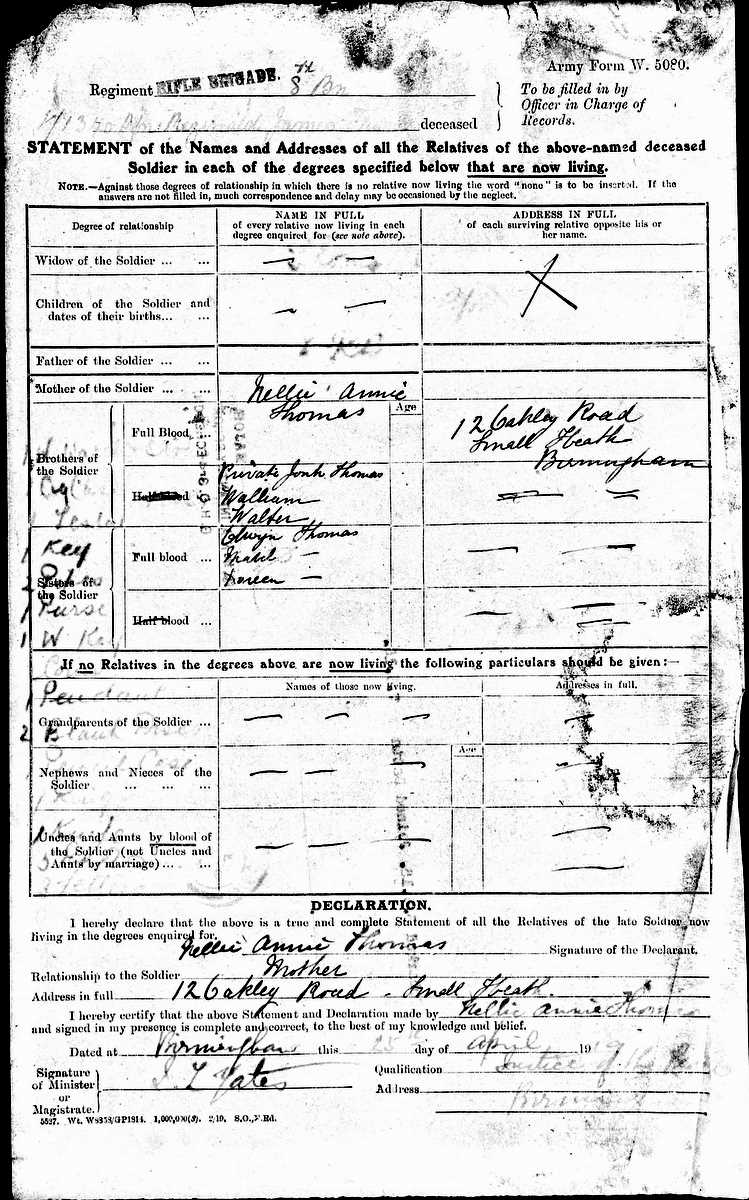 Army Form W. 5080.
Regiment RIFLE BRIGADE. 8 TH Bn
To be filled in by
Officer in Charge of
Records.
Reginald James deceased
STATEMENT of the Names and Addresses of all the Relatives of the above-named deceased
Soldier in each of the degrees specified below that are now living.
NOTE.—Against those degrees of relationship in which there is no relative now living the word "none" is to be inserted. If the
answers are not filled in, much correspondence and delay may be occasioned by the neglect.
Degree of relationship
NAME IN FULL
of every relative now living in each
degree enquired for (see note above).
ADDRESS IN FULL
of each surviving relative opposite his or
her name.
Widow of the Soldier ... ...
Children of the Soldier and
dates of their births... ...
Father of the Soldier ... ...
Mother of the Soldier ... ...
Nellie Annie
Thomas
Age
12 Oakley Road
Small Heath
Birmingham
Brothers of
the Soldier
Full Blood ...
Half blood
Private Thomas
William
Walter
Sisters of
the Soldier
Full blood ...
Elwyn Thomas
Doreen —
Half blood ...
Key
Purse
1 W Key
If no Relatives in the degrees above are now living the following particulars should be given:—
Names of those now living.
Addresses in full.
Pendant
Grandparents of the Soldier ...
Age
Nephews and Nieces of the
Soldier ... ... ...
Uncles and Aunts by blood of
the Soldier (not Uncles and
Aunts by marriage)... ...
DECLARATION.
I hereby declare that the above is a true and complete Statement of all the Relatives of the late Soldier now
living in the degrees enquired for.
Nellie Annie Thomas Signature of the Declarant.
Relationship to the Soldier Mother
Address in full 12 Oakley Road - Small Heath
I hereby certify that the above Statement and Declaration made by Nellie Annie Thomas
and signed in my presence is complete and correct, to the best of my knowledge and belief.
Dated at Birmingham this 25th day of April 19
Signature
of Minister
or
Magistrate.
Yates
Qualification Justice of
Address
5527. Wt. W8358/GP1814. 1,000,000(3). 2/19. S.O.,F.Rd.